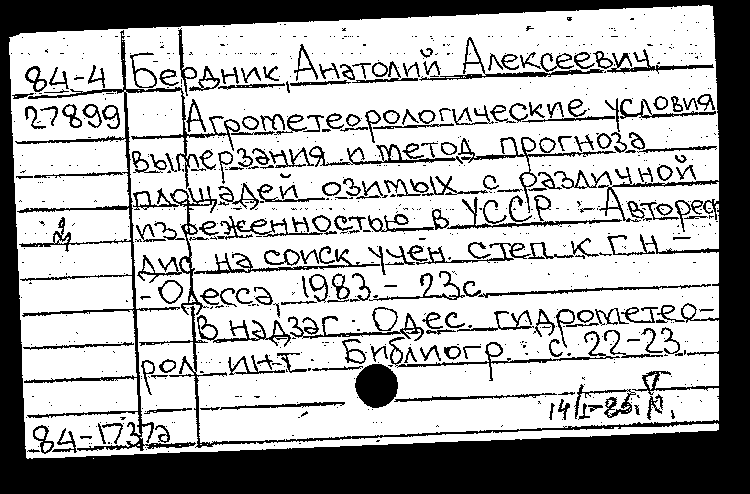 84-4 Бердник, Анатолий Алексеевич.
27899 Агрометеорологические условия
вымерзания и метод прогноза
площадей озимых с различной
изреженностью в УССР : Автореф
дис на соиск. учен. степ. к. г. н. -
- Одесса, 1983. - 23 с.
В надзаг.: Одес. гидрометео-
рол. ин-т. Библиогр.: с. 22-23
84-1737а